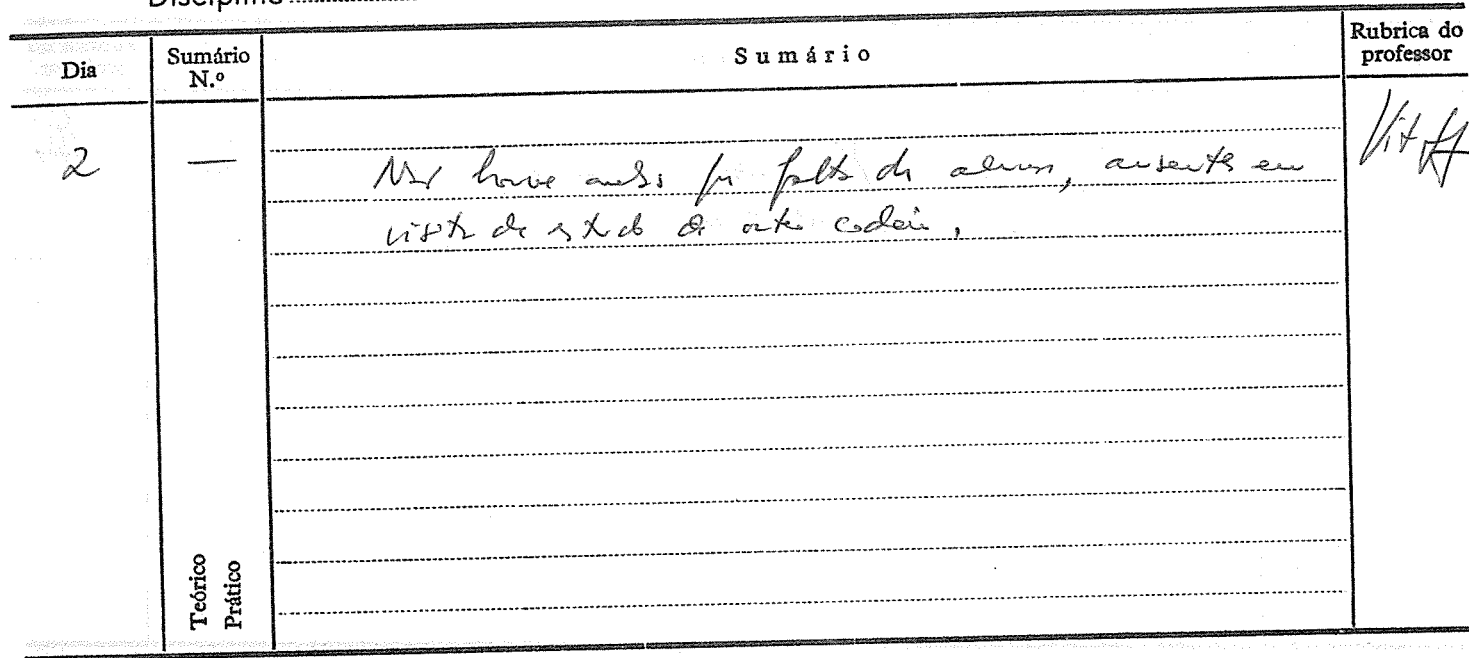 Disciplina
Dia
Sumário N.º
Sumário
Rubrica do professor
2
—
Não houve aula por falta de alunos, ausentes em
visita de estudo de outra cadeira.
Teórico
Prático